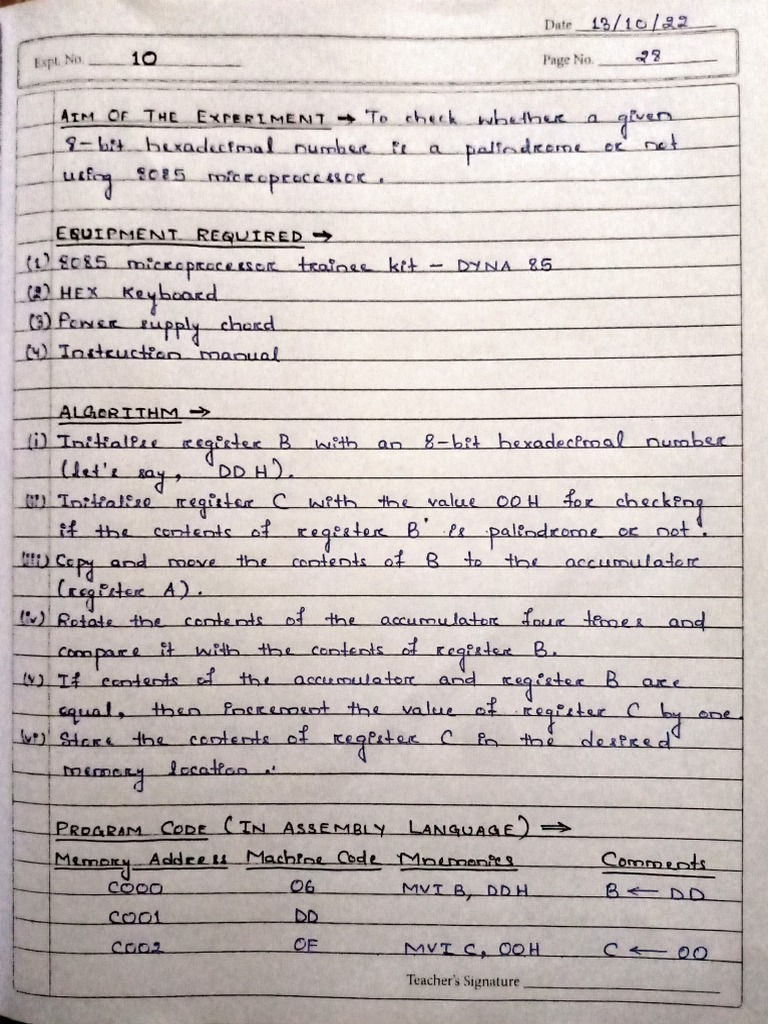 Date 13/10/22
Expt. No. 10 Page No. 28
AIM OF THE EXPERIMENT → To check whether a given
8-bit hexadecimal number is a palindrome or not
using 8085 microprocessor.
EQUIPMENT REQUIRED →
(1) 8085 microprocessor trainee kit - DYNA 85
(2) HEX Keyboard
(3) Power supply chord
(4) Instruction manual
ALGORITHM →
(i) Initialise register B with an 8-bit hexadecimal number
(let's say, DD H).
(ii) Initialise register C with the value 00H for checking
if the contents of register B is palindrome or not.
(iii) Copy and move the contents of B to the accumulator
(register A).
(iv) Rotate the contents of the accumulator four times and
compare it with the contents of register B.
(v) If contents of the accumulator and register B are
equal, then increment the value of register C by one.
(vi) Store the contents of register C in the desired
memory location.
PROGRAM CODE (IN ASSEMBLY LANGUAGE) ⇒
Memory Address Machine Code Mnemonics Comments
C000 06 MVI B, DDH B ← DD
C001 DD
C002 0E MVI C, 00H C ← 00
Teacher's Signature